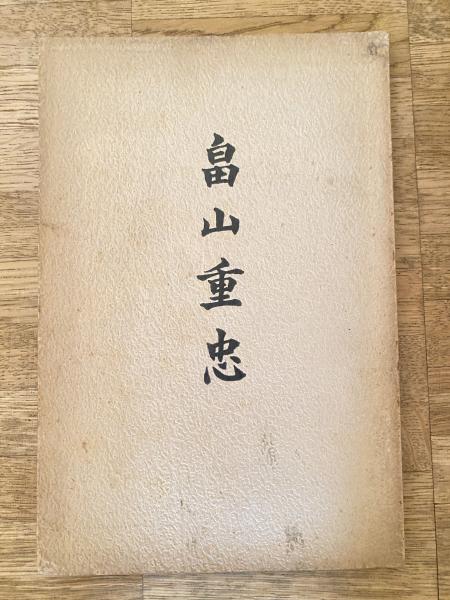 畠山重忠